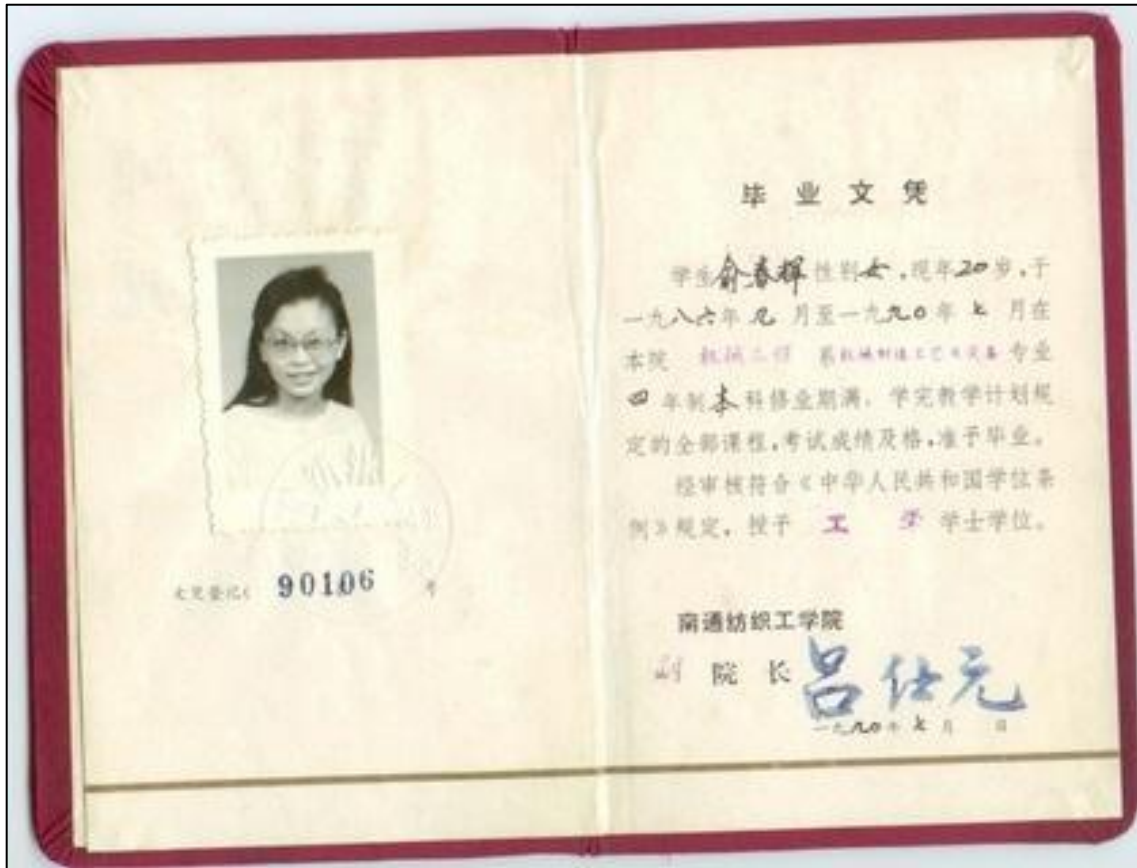 90106
毕业文凭
学生俞春辉性别女，现年20岁，于
一九八六年九月至一九九0年七月在
本院 机械工程 系机械制造工艺及设备专业
四年制本科修业期满，学完教学计划规
定的全部课程，考试成绩及格，准予毕业。
经审核符合《中华人民共和国学位条
例》规定，授予 工 学 学士学位。
南通纺织工学院
副 院 长 吕仕元
一九九0年七月 日